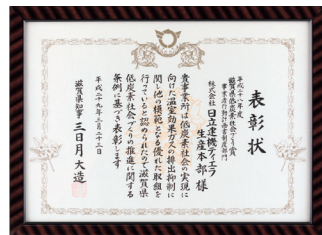 表彰状
平成二十八年度
滋賀県低炭素社会づくり賞
事業者行動計画書制度部門
株式会社 日立建機ティエラ
生産本部 様
貴事業所は低炭素社会の実現に
向けた温室効果ガスの排出抑制に
関し他の模範となる優れた取組を
行っていると認められたので滋賀県
低炭素社会づくりの推進に関する
条例に基づき表彰します
平成二十九年三月二十三日
滋賀県知事 三日月大造